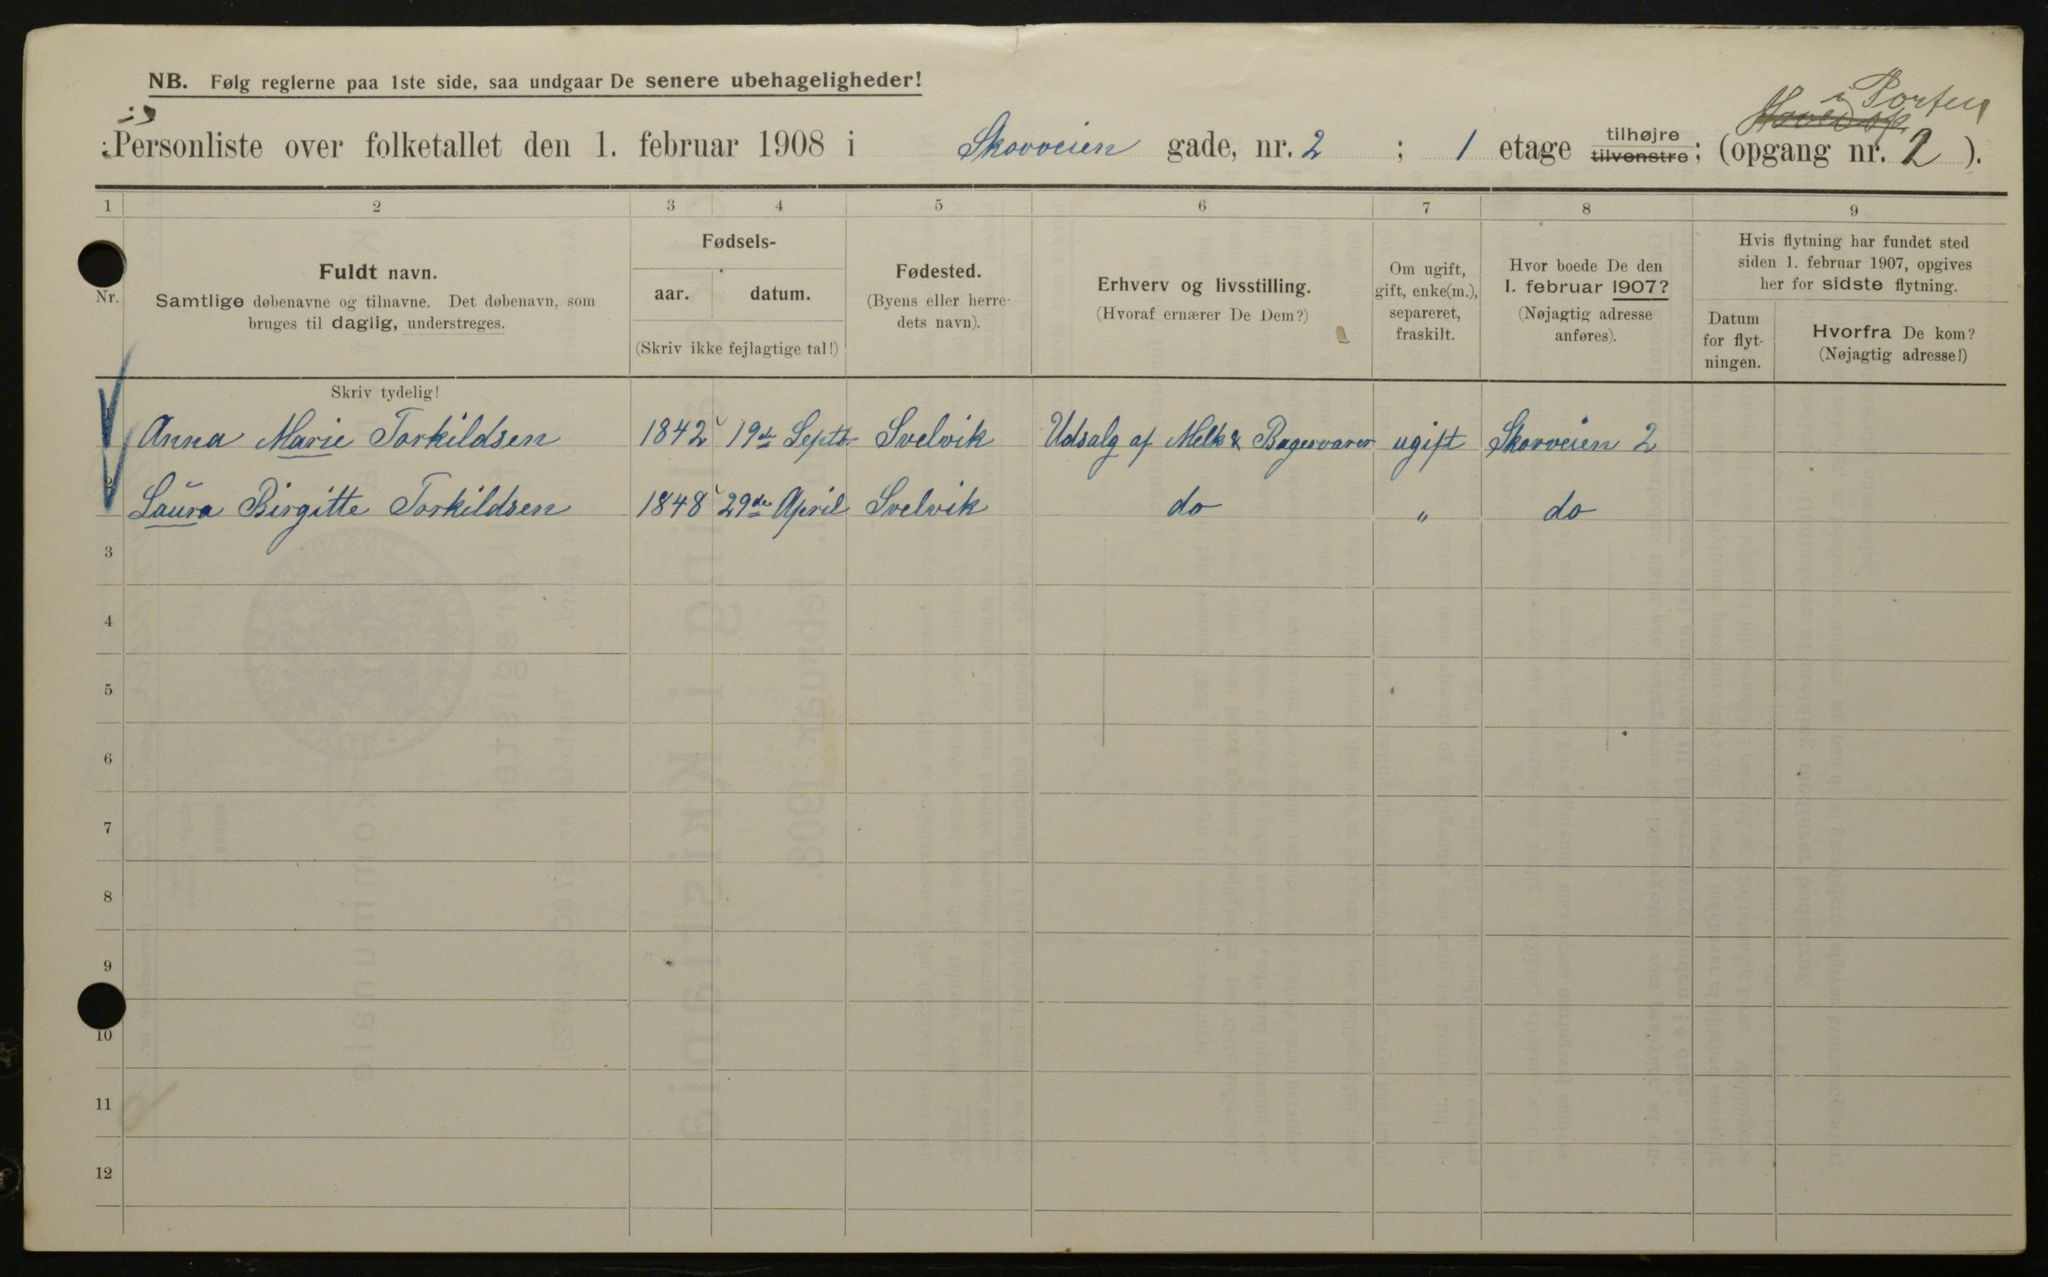 NB. Følg reglerne paa 1ste side, saa undgaar De senere ubehageligheder!
i Porten
Personliste over folketallet den 1. februar 1908 i Skovveien gade, nr. 2 ; 1 etage tilhøjre tilvenstre; (opgang nr. 2 ).
1 2 3 4 5 6 7 8 9
Nr.
Fuldt navn.
Samtlige døbenavne og tilnavne. Det døbenavn, som
bruges til daglig, understreges.
Fødsels-
aar. datum.
(Skriv ikke fejlagtige tal!)
Fødested.
(Byens eller herre-
dets navn).
Erhverv og livsstilling.
(Hvoraf ernærer De Dem?)
Om ugift,
gift, enke(m.),
separeret,
fraskilt.
Hvor boede De den
1. februar 1907?
(Nøjagtig adresse
anføres).
Hvis flytning har fundet sted
siden 1. februar 1907, opgives
her for sidste flytning.
Datum
for flyt-
ningen.
Hvorfra De kom?
(Nøjagtig adresse!)
Skriv tydelig!
Anna Marie Torkildsen 1842 19de Septb. Svelvik Udsalg af Melk & Bagervarer ugift Skovveien 2
2 Laura Birgitte Torkildsen 1848 29de April Svelvik do " do
3
4
5
6
7
8
9
10
11
12